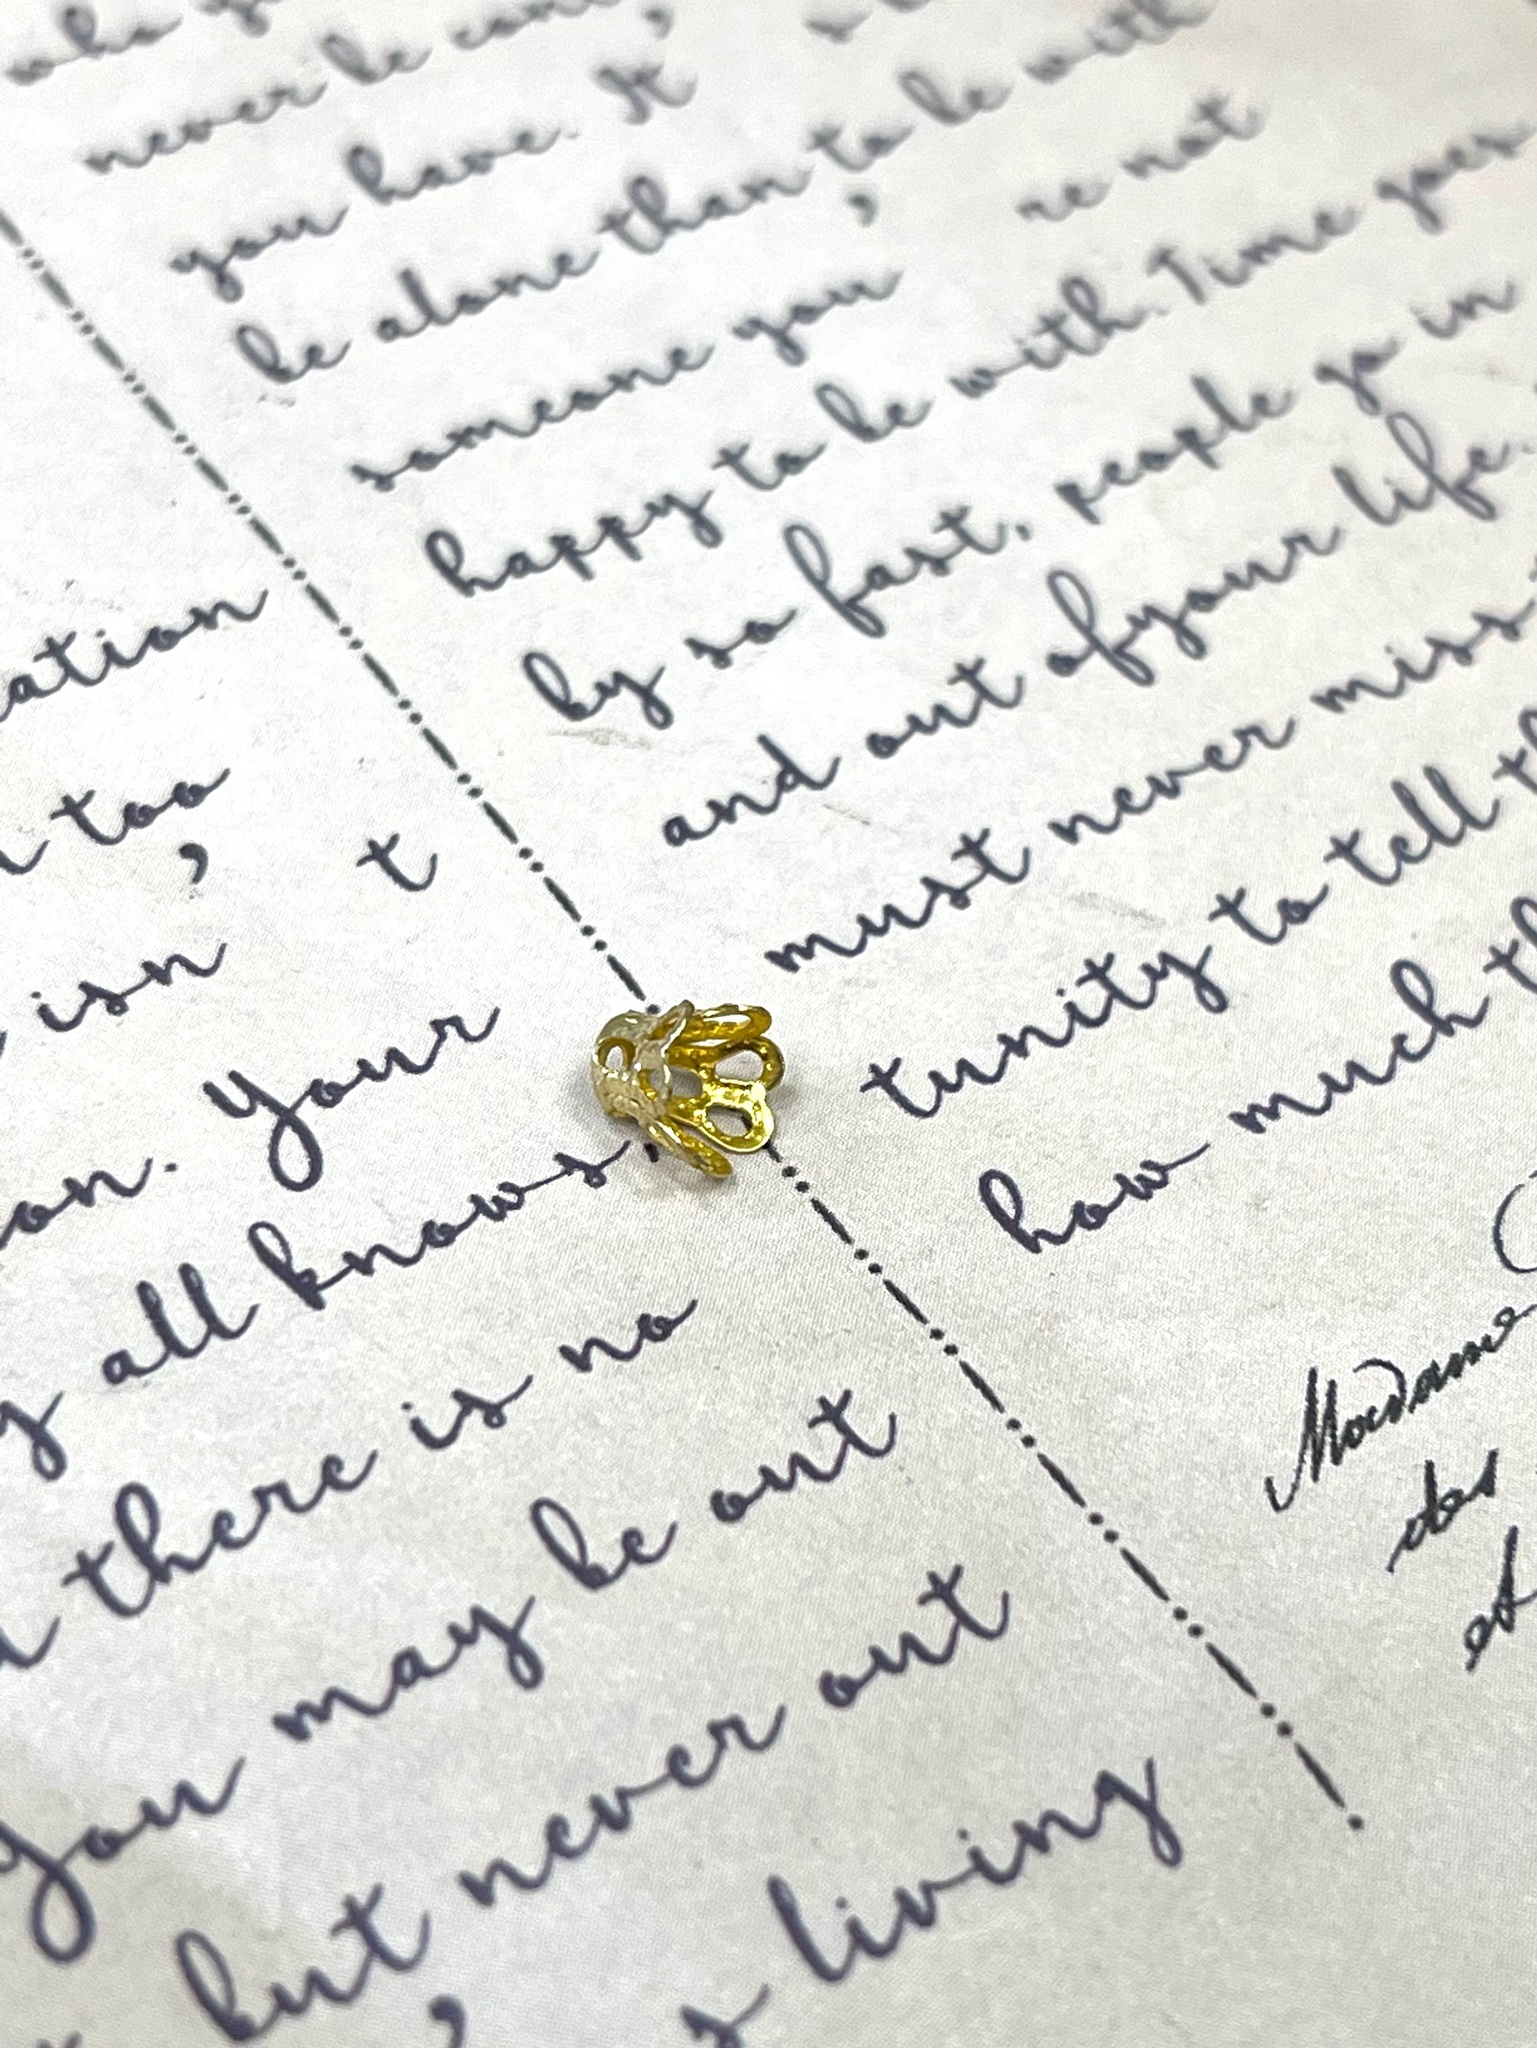 never be
you have. It
be alone than to be with
someone you ' re not
happy to be with. Time goes
by so fast, people go in
and out ofyour life.
must never miss
tunity to tell
how much
Madame
des
et
ation
too
isn ' t
on. Your
all knows
there is no
you may be out
but never out
' s living